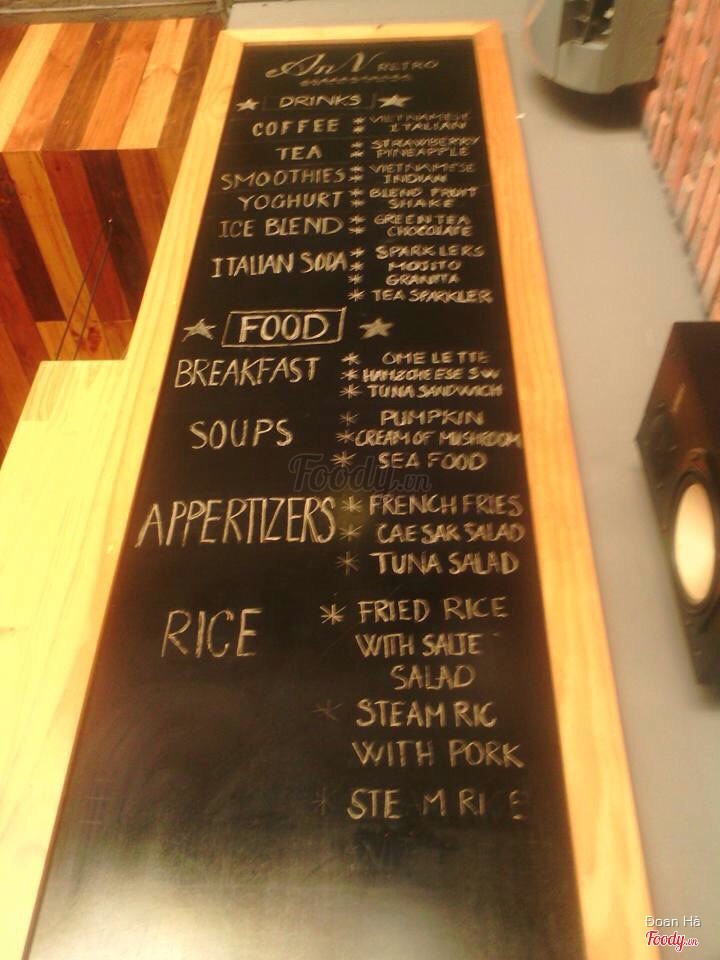 AnN RETRO
★ DRINKS ★
COFFEE * VIETNAMESE
* ITALIAN
TEA * STRAWBERRY
* PINEAPPLE
SMOOTHIES * VIETNAMESE
* INDIAN
YOGHURT * BLEND FRUIT
* SHAKE
ICE BLEND * GREEN TEA
* CHOCOLATE
ITALIAN SODA * SPARKLERS
* MOJITO
* GRANITA
* TEA SPARKLER
★ FOOD ★
BREAKFAST * OMELETTE
* HAM&CHEESE SW
* TUNA SANDWICH
SOUPS * PUMPKIN
* CREAM OF MUSHROOM
* SEA FOOD
Foody.vn
APPERTIZERS * FRENCH FRIES
* CAESAR SALAD
* TUNA SALAD
RICE * FRIED RICE
WITH SALTE
SALAD
* STEAM RIC
WITH PORK
* STE M RICE
Đoan Hà
Foody.vn